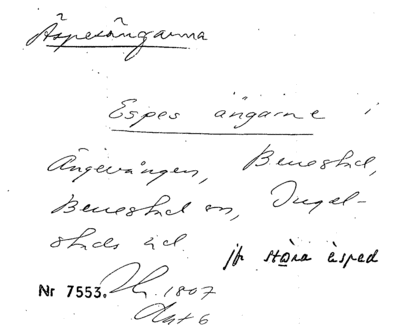 Äspesängarna
Espes ängarne i
Ängevången, Benestad,
Benestad sn, Ingel-
stads hd.
jfr stora èsped
Nr 7553. 1807
Akt 6